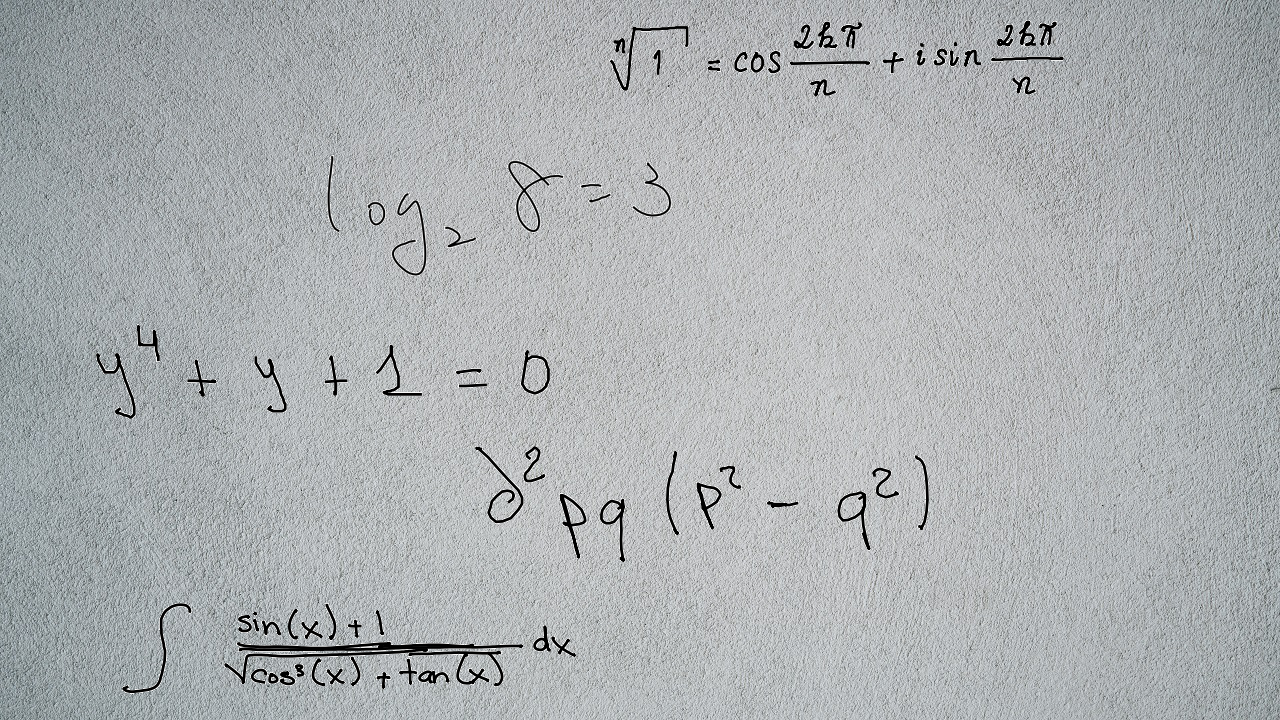 \sqrt[n]{1} = \cos \frac{2k\pi}{n} + i \sin \frac{2k\pi}{n}
\log_2 8 = 3
y^4 + y + 1 = 0
\partial^2 pq (p^2 - q^2)
\int \frac{\sin(x) + 1}{\sqrt{\cos^3(x) + \tan(x)}} dx